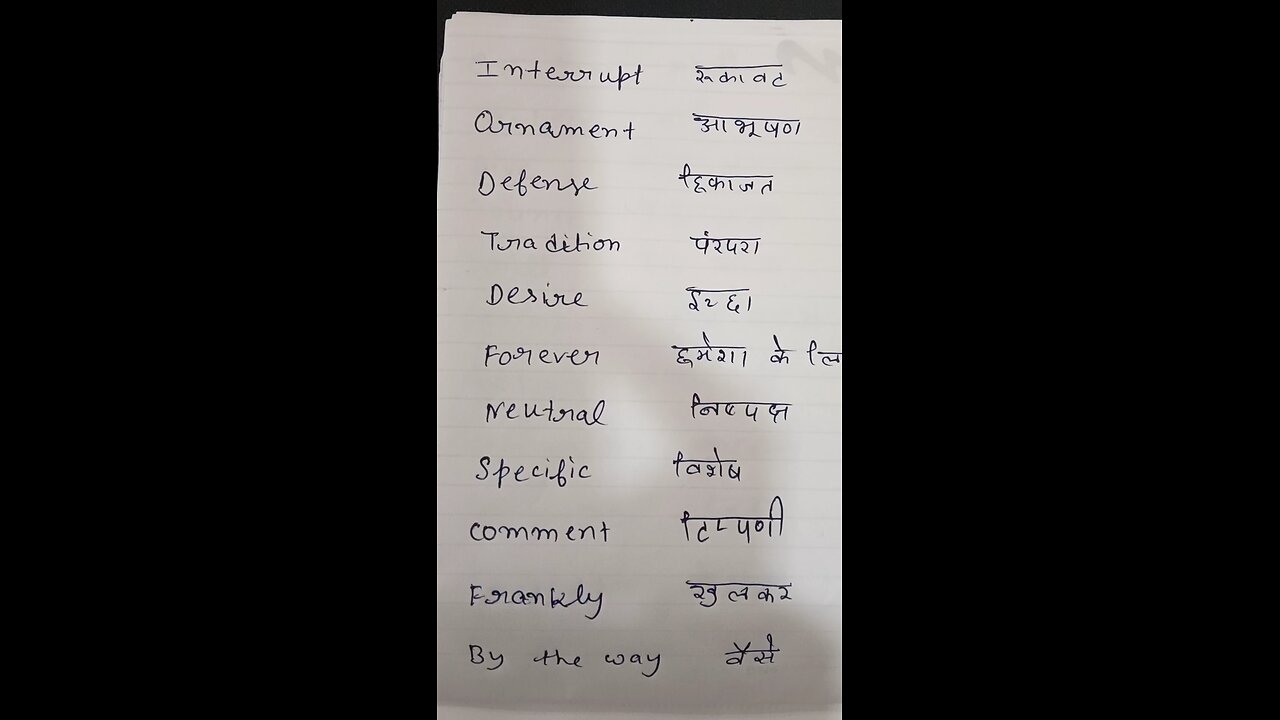 Interrupt रूकावट
Ornament आभूषण
Defense हिफाजत
Tradition पंरपरा
Desire ईच्छा
Forever हमेशा के लि
Neutral निष्पक्ष
Specific विशेष
Comment टिप्पणी
Frankly खुलकर
By the way वैसे